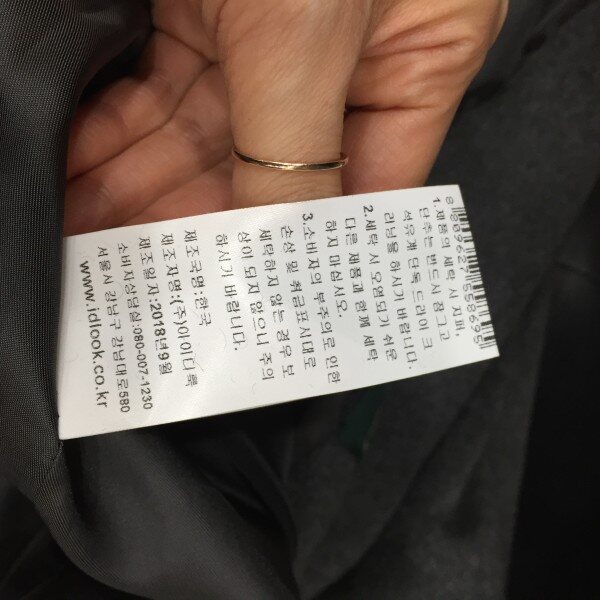 8809627558695
1.제품의 세탁 시 지퍼,
단추는 반드시 잠그고
석유계 단독 드라이크
리닝을 하시기 바랍니다.
2.세탁 시 오염되기 쉬운
다른 제품과 함께 세탁
하지 마십시오.
3.소비자의 부주의로 인한
손상 및 취급표시대로
세탁하지 않는 경우 보
상이 되지 않으니 주의
하시기 바랍니다.
제조국명:한국
제조자명:(주)아이디룩
제조일자:2018년9월
소비자상담실:080-007-1230
서울시 강남구 강남대로580
www.idlook.co.kr